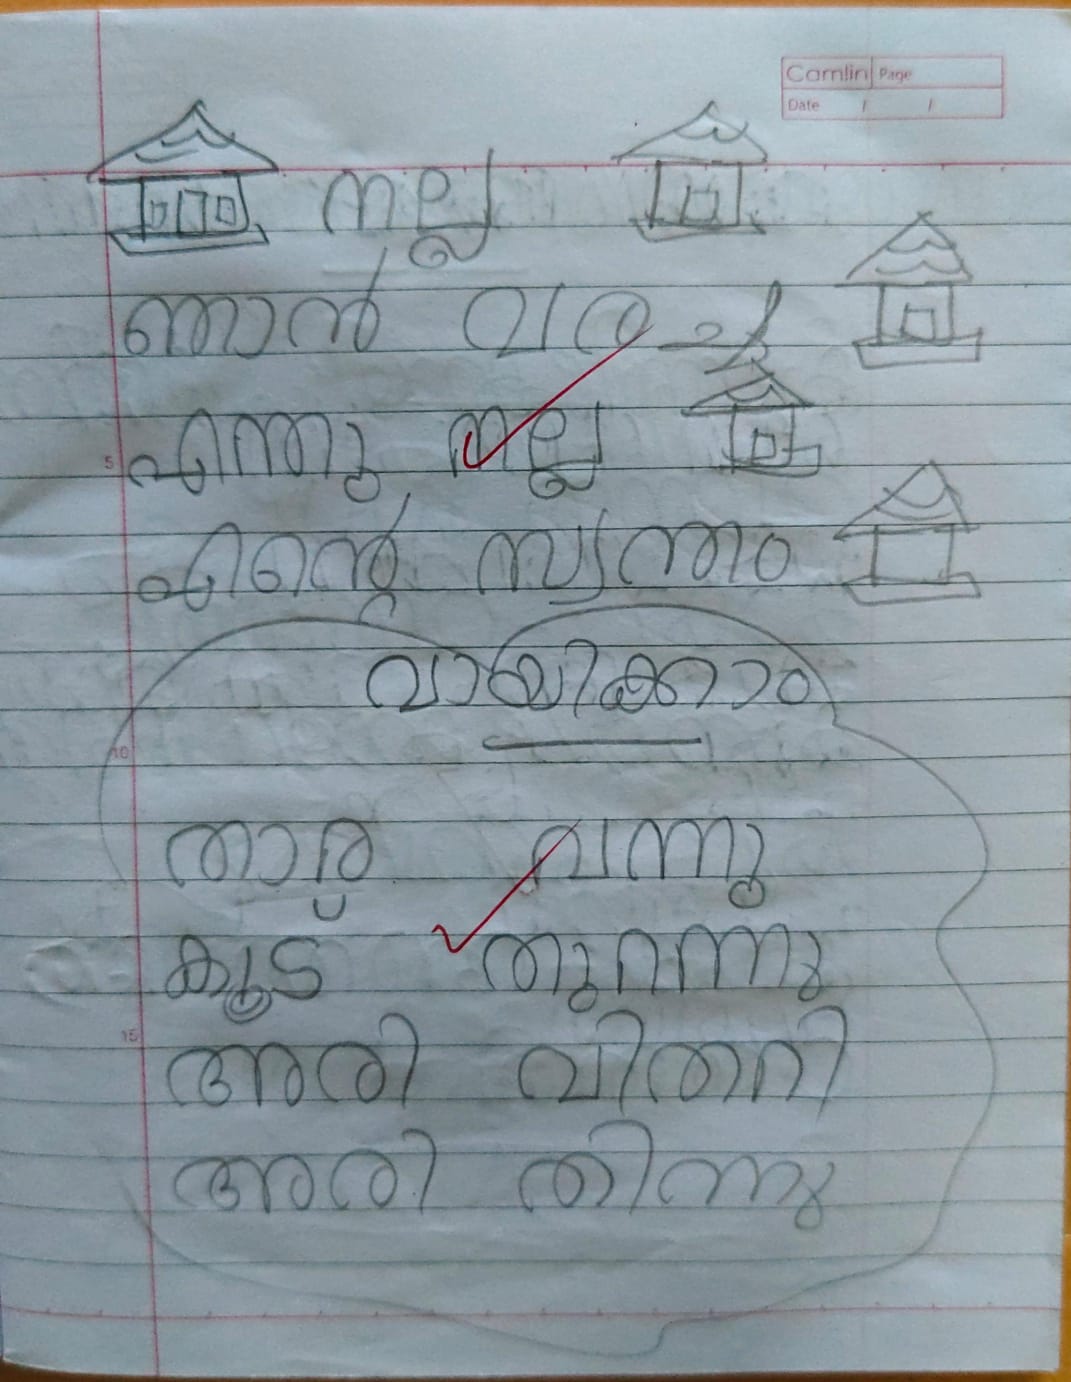 Camlin Page
Date / /
നല്ല
ഞാൻ വരച്ച
എന്തു നല്ല
എന്റെ സ്വന്തം
വായിക്കാം
താറു വന്നു
കൂട തുറന്നു
അരി വിതറി
അരി തിന്നു
5
10
15